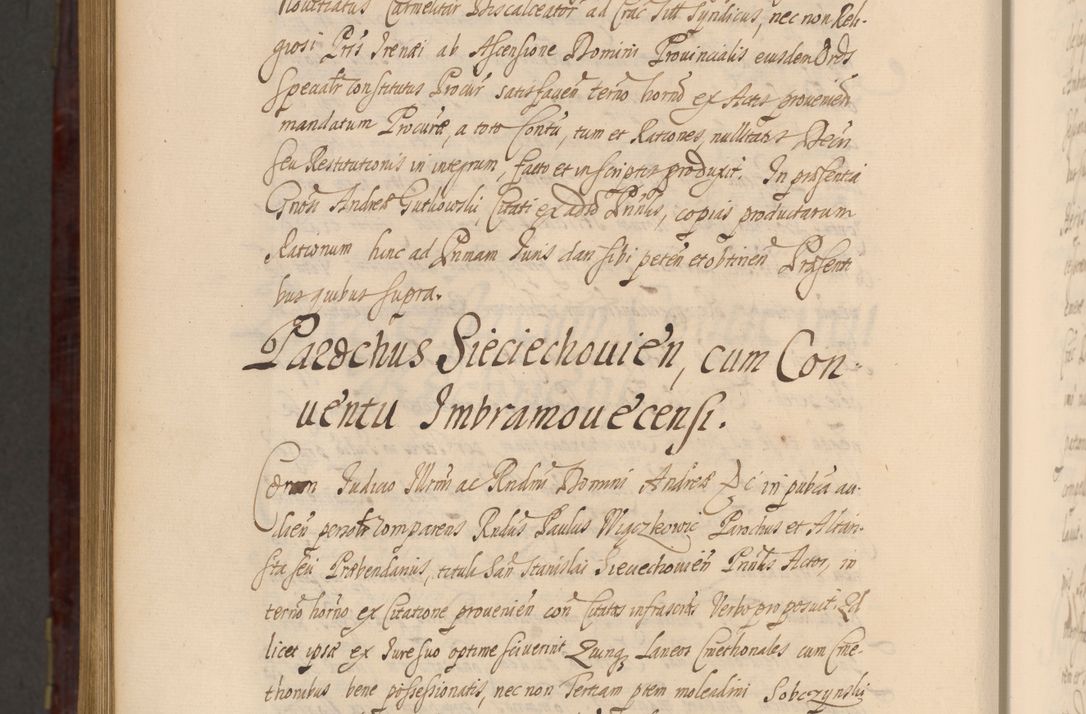 Novitiatus Carmelitar Discalceator ad Crac Titt Syndicus, nec non Reli-
giosi Pris Irenæi ab Ascensione Domini Provincialis eiusdem Ords
specialr constitutus Procur satisfacien terno horno ex Actis provenien
mandatum Procuræ, a toto Contu, tum et Rationes, nullitatis Decr
seu Restitutionis in integrum, facto et in scriptis produxit. In præsentia
Gnosi Andreæ Gutkowski, Citati ex adro Prnlis, copias productarum
Rationum hinc ad Primam Iuris dari sibi peten et obtinen Præsenti
bus quibus supra.
Parochus Sieciechovien, cum Con-
ventu Imbramovecensi.
Coram Iudicio Illrmi ac Rndmi Domini Andreæ in pubca au-
dien personr comparens Rndus Paulus Wiączkowic Parochus et Altari-
sta seu Præbendarius, tituli San Stanislai Sieciechovien Prnlis Actor, in
terno horno ex Citatione provenien con Citatis infrascris Verbo proposuit. Qd
licet ipsæ ex Iure suo optime sciverint Quinq Laneos Cmethonales cum Cme-
thonibus bene possessionatis, nec non Tertiam ptem molendini Sobczynski